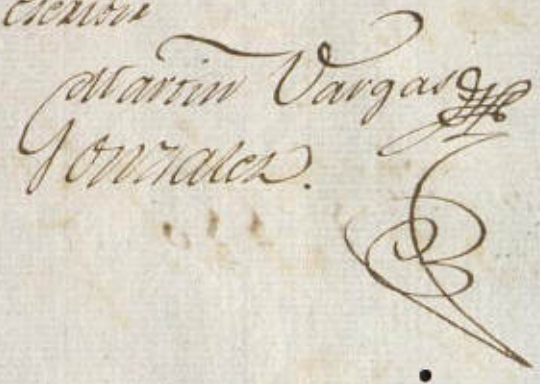 Martin Vargas
Gonzalez.